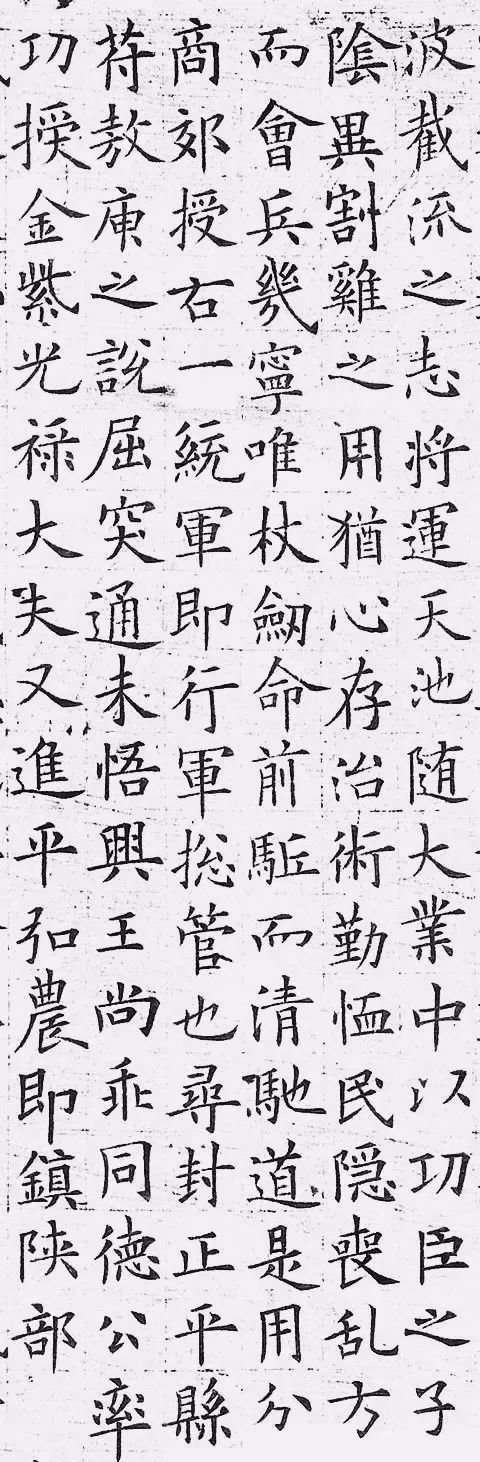 波截流之志将運天池随大業中以功臣之子
隂異割雞之用猶心存治術勤恤民隠喪乱方
而會兵幾寧唯杖劒命前駈而清馳道是用分
商郊授右一統軍即行軍捴管也尋封正平縣
苻敖庾之說屈突通未悟興王尚乖同德公率
功授金紫光禄大夫又進平弘農即鎮陝部